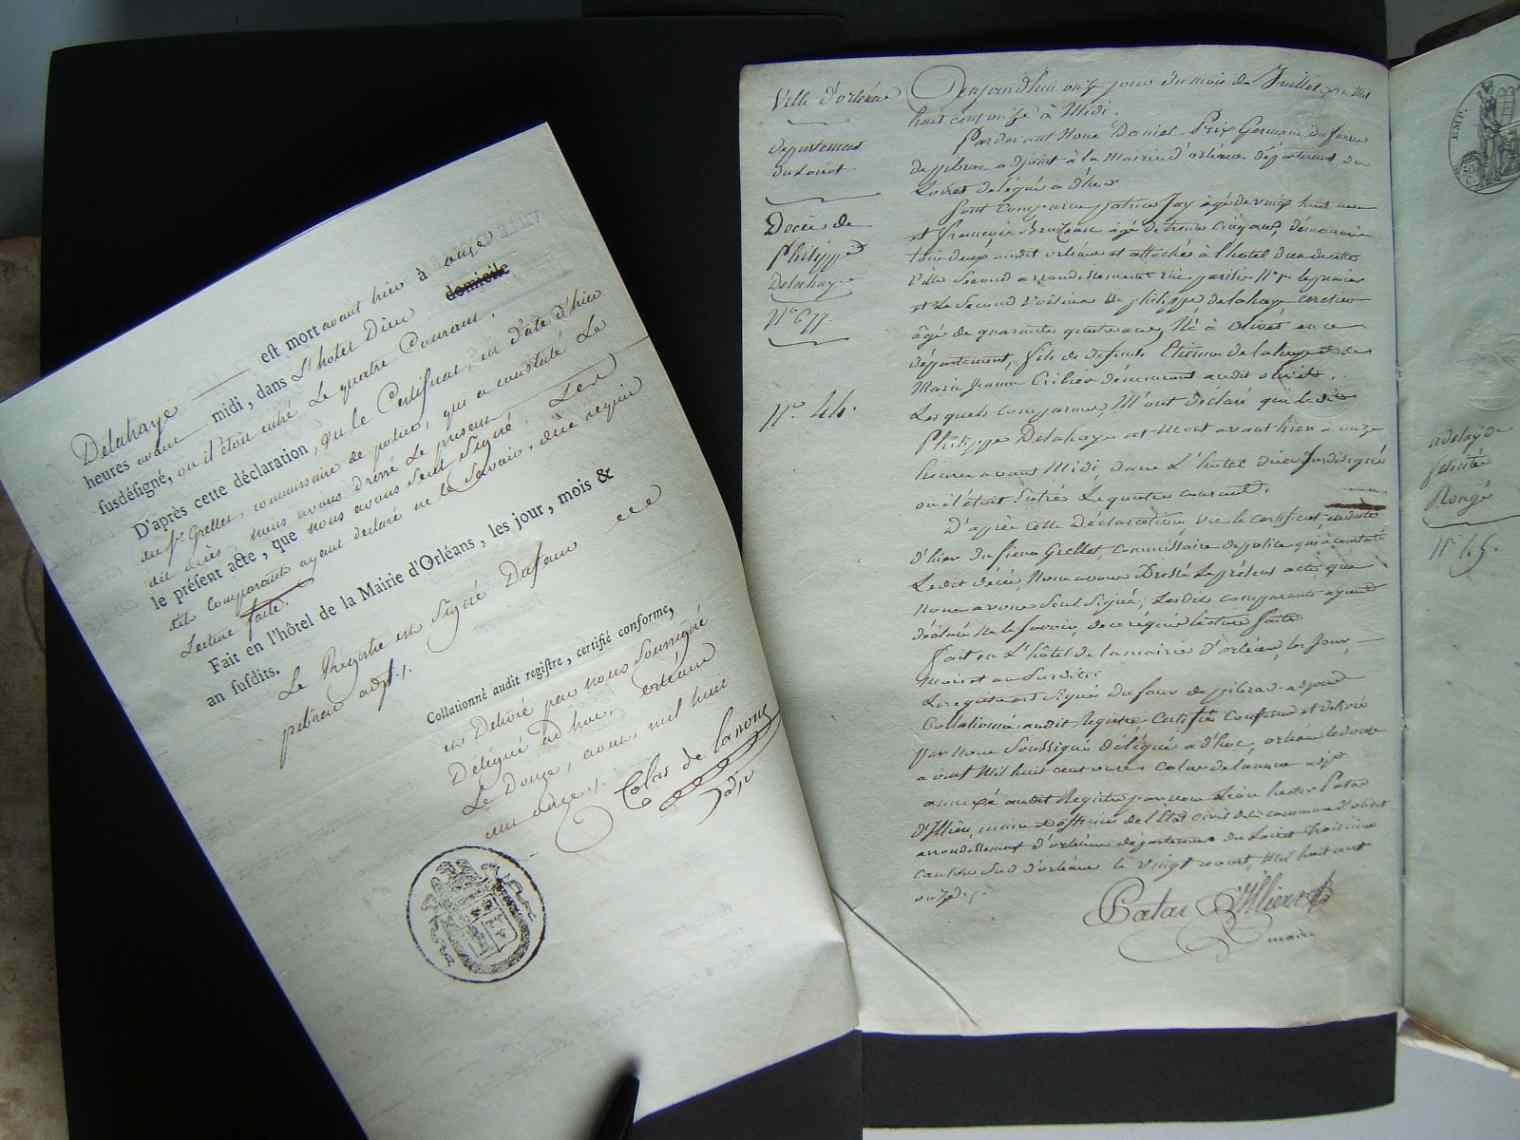 Delahaye est mort avant hier à onze
heures avant midi, dans L'hotel Dieu domicile
susdésigné, ou il étoit entré Le quatre Courant.
D'après cette déclaration, vu le Certificat, en d'ate d'hier
du Sr. Grellet, commissaire de police, qui a constaté Le
dit décès, nous avons dressé Le present Les
le présent acte, que nous avons seul signé,
dits Comparants ayant déclaré ne le Savoir, dèce requis
Lecture faite.
Fait en l'hôtel de la Mairie d'Orléans, les jour, mois &
an susdits.
Le Registre est signé Dufaur
pibrac adjt.
Collationné audit registre, certifié conforme,
et Delivré par nous Soussigné
Délégué ad hoc, orléans
Le Douze, aout, mil huit
cent onze.
Colas de Lanoue
adj
Ville d'orléans
Departement
du Loiret
Décès de
Philippe
Delahaye
N° 677.
N° 44.
Cejourd'hui onze jour du mois de Juillet an Mil
huit cent onze à Midi.
Pardevant Nous Daniel Prix Germain dufaur
de pibrac adjoint à la Mairie d'orléans département du
Loiret délégué à d'hoc
Sont Comparus patrice Jay âgé de vingt huit ans
et françois Bruzeau âgé de trente cinq ans, demeurant
tous deux audit orléans et attachés à l'hotel dieu de cette
Ville Second arrondissement rue parisis N° 1 le premier
et Le Second Voisin de philippe delahaye
âgé de quarante quatre ans, Né à olivet en ce
département, fils de defunts Etienne delahaye et de
Marie Jeanne Cribier demeurant audit olivet.
Lesquels Comparans M'ont déclaré que le dit
Philippe Delahaye est Mort avant hier à onze
heures avant Midi, dans L'hotel dieu susdésigné
ou il était Entré Le quatre courant.
D'après cette Déclaration, vu le certificat en date
d'hier du sieur Grellet, Commissaire de police qui a constaté
Ledit décès, Nous avons Dressé Le présent acte que
Nous avons Seul Signé, Lesdits comparants ayant
déclaré Ne le savoir, de ce requis lecture faite
fait en L'hôtel de la mairie d'orléans, les Jour,
Mois et an Susdits
Le registre est signé dufaur de pibrac adjoint
Collationné audit Registre Certifié Conforme et délivré
par Nous Soussigné délégué a d'hoc, orléans le douze
aout Mil huit cent onze Colas delanoue adjt
annexé audit Registre par nous Léon hector Patas
d'Illiers, maire officier de l'État civil de la commune d'olivet
arrondissement d'orléans département du Loiret troisième
canton Sud d'orléans le Vingt aout, Mil huit cent
onze.
Patas d'Illiers
maire
EMP.
adelayde
felicité
Rongé
N° 45.